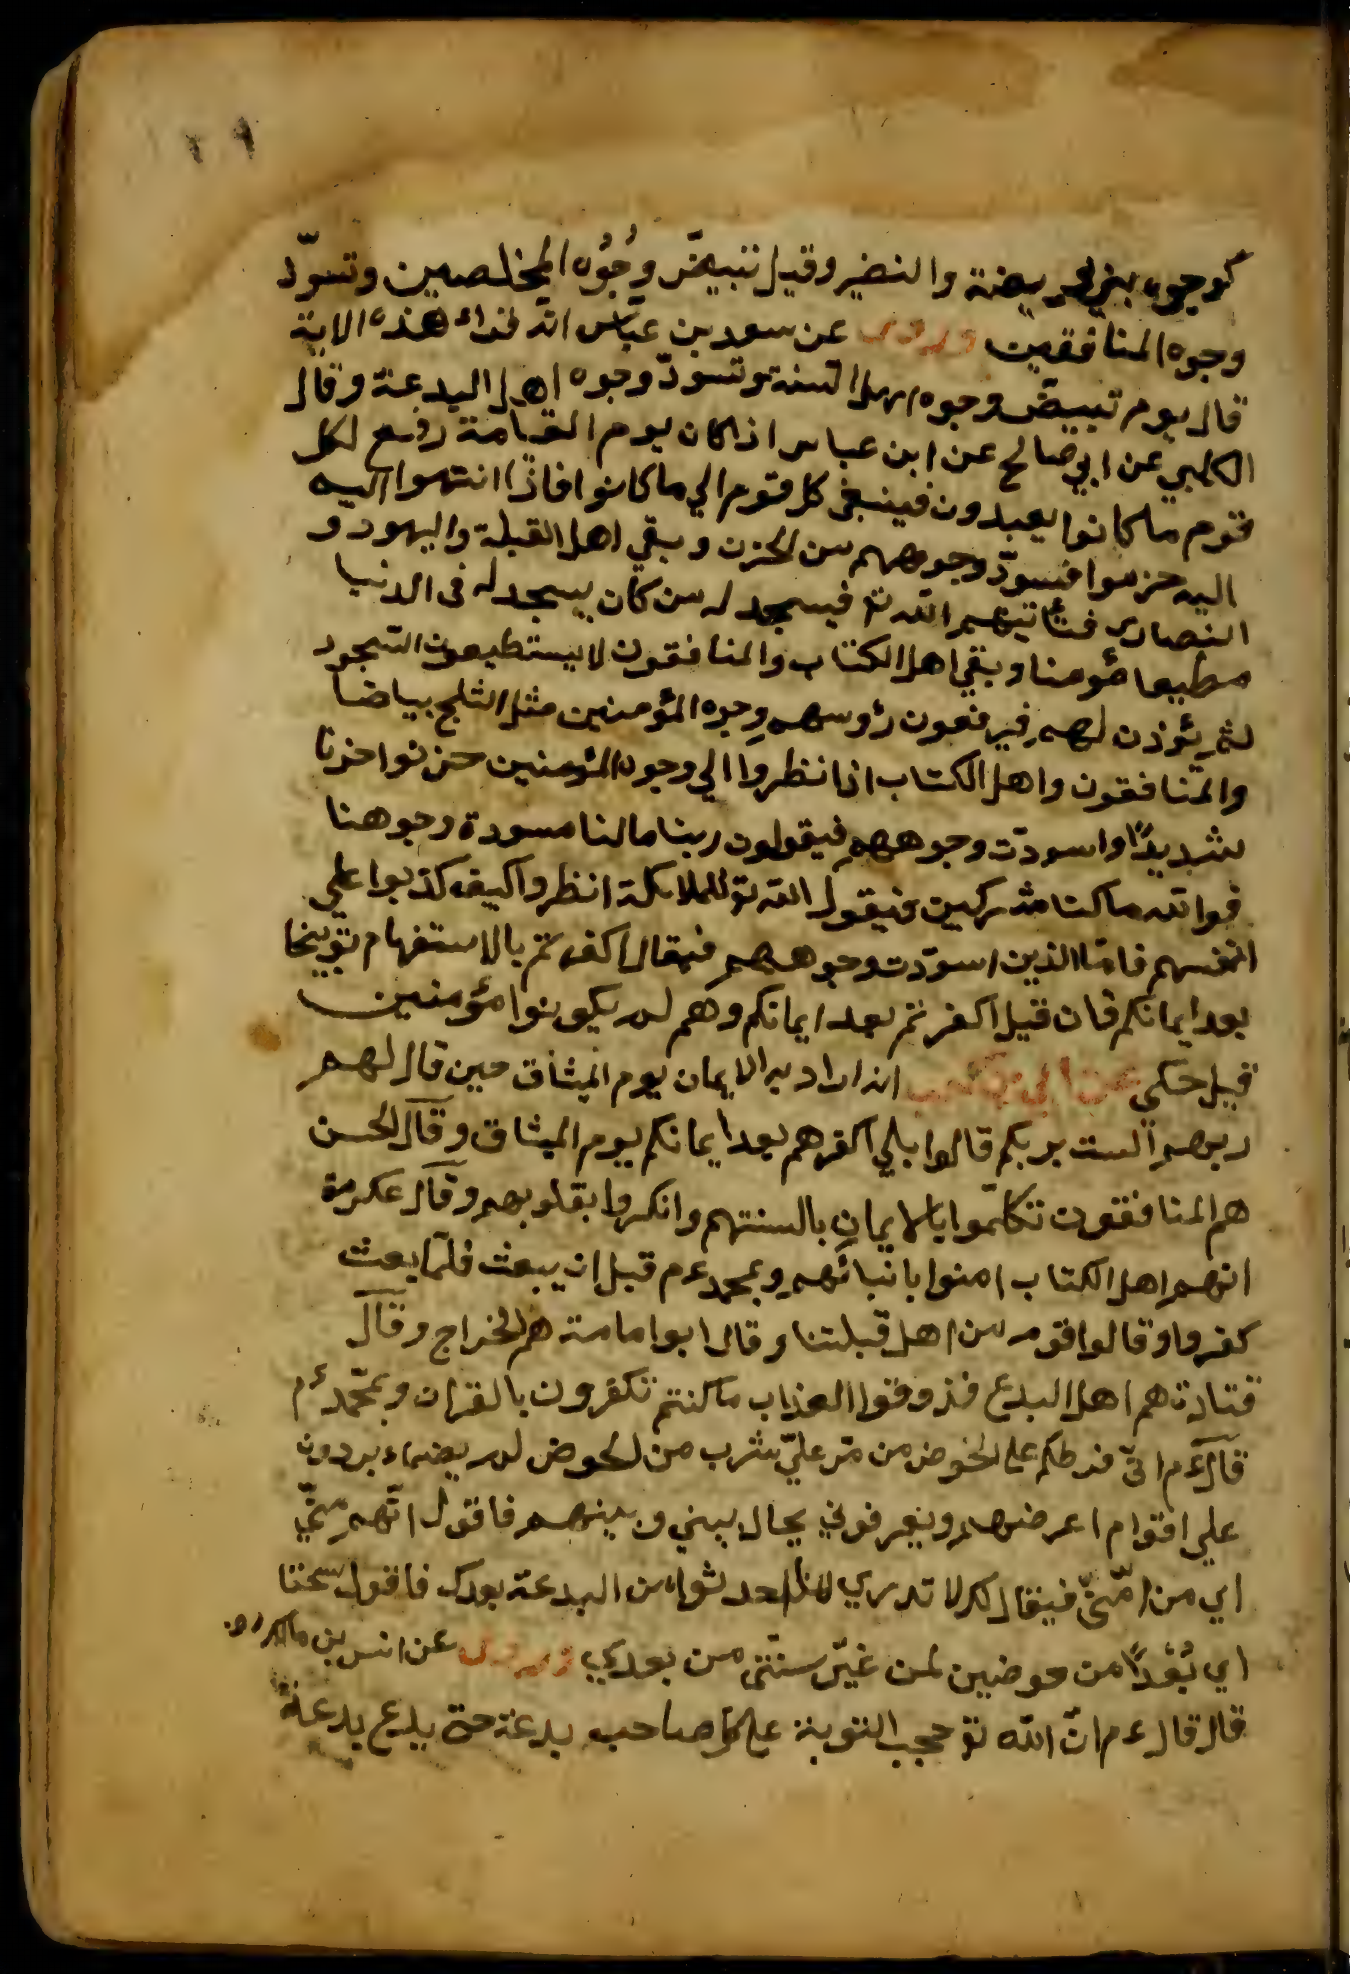 ٢٩
كوجوه بني قريضة والنضير وقيل تبيضّ وُجُوُه المخلصين وتسوّد
وجوه المنافقين وروى عن سعد بن عبّاس انه قراء هذه الاية
قال يوم تبيضّ وجوه اهل السنة وتسودّ وجوه اهل البدعة وقال
الكلبي عن ابي صالح عن ابن عباس اذا كان يوم القيامة رفع لكل
قوم ما كانوا يعبدون فيسعى كل قوم الي ما كانوا فاذا انتهوا اليه
اليه حزنوا فتسودّ وجوههم من الحزن وبقي اهل القبلة واليهود و
النصارى فتأتيهم الله تع فيسجد له من كان يسجد له فى الدنيا
مطيعا مؤمنا وبقي اهل الكتاب والمنافقون لا يستطيعون السّجود
ثم يؤذن لهم فيرفعون رؤوسهم وجوه المؤمنين مثل الثلج بياضا
والمنافقون واهل الكتاب اذا نظروا الي وجوه المؤمنين حزنوا حزنا
شديدًا واسودّت وجوههم فيقولون ربنا مالنا مسودة وجوهنا
فوالله ما كنا مشركين فيقول الله تع للملائكة انظروا كيف كذبوا علي
انفسهم فامّا الذين اسوّدت وجوههم فيقال اكفرتم بالاستفهام توبيخا
بعد ايمانكم فان قيل اكفرتم بعد ايمانكم وهم لم يكونوا مؤمنين
قيل حكي عن ابي بن كعب انه اراد به الايمان يوم الميثاق حين قال لهم
ربهم الست بربكم قالوا بلي اكفرهم بعد ايمانكم يوم الميثاق وقال الحسن
هم المنافقون تكلّموا بالايمان بالسنتهم وانكروا بقلوبهم وقال عكرمة
انهم اهل الكتاب امنوا بانبيائهم وبمحمد ءم قبل ان يبعث فلمّا بعث
كفروا وقالوا قوم من اهل قبلتنا وقال ابو امامة هم الخراج وقال
قتادة هم اهل البدع فذوقوا العذاب ما كنتم تكفرون بالقران وبمحمّد ءم
قال ءم انّى فرطكم على الحوض من مرّ عليّ شرب من الحوض لم يضماء يردون
علي اقوام اعرضهم ويعرفوني يحال بيني وبينهم فاقول انّهم منّي
اي من امّتى فيقال لك لا تدري ما احدثوا من البدعة بعدك فاقول سحقا
اي بُعْدًا من حوضين لمن غيّر سنّتى من بعدي وروى عن انس بن مالك رض
قال قال ءم انّ الله تع حجب التوبة على كل صاحب بدعة حتى يدع بدعة